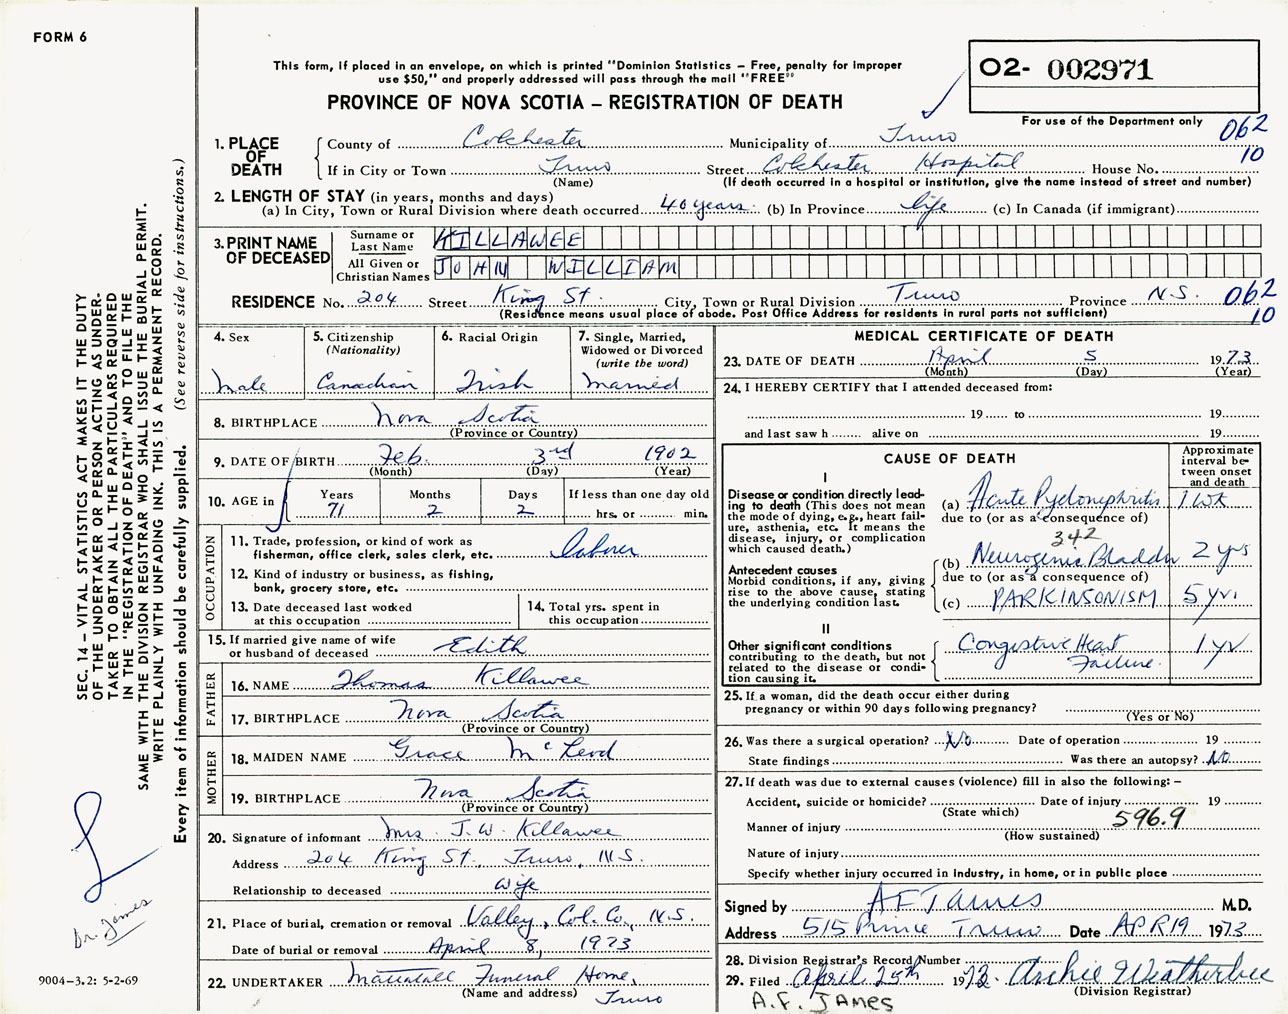 FORM 6
This form, if placed in an envelope, on which is printed "Dominion Statistics – Free, penalty for improper
use $50," and properly addressed will pass through the mail "FREE"
PROVINCE OF NOVA SCOTIA – REGISTRATION OF DEATH
O2- 002971
For use of the Department only
062
10
1. PLACE OF DEATH
County of Colchester Municipality of Truro
If in City or Town Truro Street Colchester Hospital House No.
(Name) (If death occurred in a hospital or institution, give the name instead of street and number)
2. LENGTH OF STAY (in years, months and days)
(a) In City, Town or Rural Division where death occurred 40 years. (b) In Province life (c) In Canada (if immigrant)
3. PRINT NAME OF DECEASED
Surname or Last Name KILLAWEE
All Given or Christian Names JOHN WILLIAM
RESIDENCE No. 204 Street King St. City, Town or Rural Division Truro Province N.S. 062
(Residence means usual place of abode. Post Office Address for residents in rural parts not sufficient) 10
4. Sex
male
5. Citizenship
(Nationality)
Canadian
6. Racial Origin
Irish
7. Single, Married,
Widowed or Divorced
(write the word)
married
8. BIRTHPLACE Nova Scotia
(Province or Country)
9. DATE OF BIRTH Feb. 3rd 1902
(Month) (Day) (Year)
10. AGE in
Years Months Days If less than one day old
71 2 2 hrs. or min.
OCCUPATION
11. Trade, profession, or kind of work as
fisherman, office clerk, sales clerk, etc. laborer
12. Kind of industry or business, as fishing,
bank, grocery store, etc.
13. Date deceased last worked
at this occupation
14. Total yrs. spent in
this occupation
15. If married give name of wife
or husband of deceased Edith
FATHER
16. NAME Thomas Killawee
17. BIRTHPLACE Nova Scotia
(Province or Country)
MOTHER
18. MAIDEN NAME Grace McLeod
19. BIRTHPLACE Nova Scotia
(Province or Country)
20. Signature of informant Mrs. J.W. Killawee
Address 204 King St., Truro, N.S.
Relationship to deceased wife
21. Place of burial, cremation or removal Valley, Col. Co., N.S.
Date of burial or removal April 8, 1973
22. UNDERTAKER Mattatall Funeral Home,
(Name and address) Truro
MEDICAL CERTIFICATE OF DEATH
23. DATE OF DEATH April 5 1973
(Month) (Day) (Year)
24. I HEREBY CERTIFY that I attended deceased from:
19 to 19
and last saw h alive on 19
CAUSE OF DEATH
Approximate
interval be-
tween onset
and death
I
Disease or condition directly lead-
ing to death (This does not mean
the mode of dying, e.g., heart fail-
ure, asthenia, etc. It means the
disease, injury, or complication
which caused death.)
(a) Acute Pyelonephritis 1 wk
due to (or as a consequence of)
342
Antecedent causes
Morbid conditions, if any, giving
rise to the above cause, stating
the underlying condition last.
(b) Neurogenic Bladder 2 yrs
due to (or as a consequence of)
(c) PARKINSONISM 5 yrs
II
Other significant conditions
contributing to the death, but not
related to the disease or condi-
tion causing it.
Congestive Heart 1 yr
Failure.
25. If a woman, did the death occur either during
pregnancy or within 90 days following pregnancy?
(Yes or No)
26. Was there a surgical operation? No Date of operation 19
State findings Was there an autopsy? No
27. If death was due to external causes (violence) fill in also the following: –
Accident, suicide or homicide? Date of injury 19
(State which) 596.9
Manner of injury
(How sustained)
Nature of injury
Specify whether injury occurred in Industry, in home, or in public place
Signed by A F James M.D.
Address 515 Prince Truro Date APR 19 1973
28. Division Registrar's Record Number
29. Filed April 25th 1973. Archie Weatherbee
(Division Registrar)
A.F. JAMES
SEC. 14 – VITAL STATISTICS ACT MAKES IT THE DUTY
OF THE UNDERTAKER OR PERSON ACTING AS UNDER-
TAKER TO OBTAIN ALL THE PARTICULARS REQUIRED
IN THE "REGISTRATION OF DEATH" AND TO FILE THE
SAME WITH THE DIVISION REGISTRAR WHO SHALL ISSUE THE BURIAL PERMIT.
WRITE PLAINLY WITH UNFADING INK. THIS IS A PERMANENT RECORD.
Every item of information should be carefully supplied. (See reverse side for instructions.)
Dr. James
9004-3.2: 5-2-69